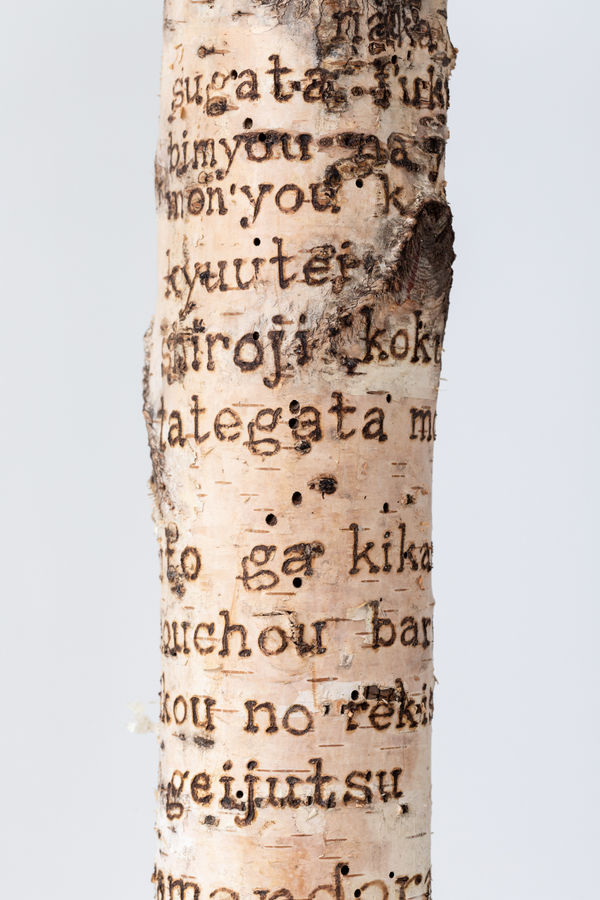 naka
sugata fuk
bimyou na y
mon'you k
kyuutei
shiroji koku
tategata mo
ito ga kika
ouchou bar
kou no rekis
geijutsu
mandara